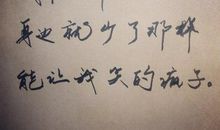 身边就少了那样
能让我笑的疯子。